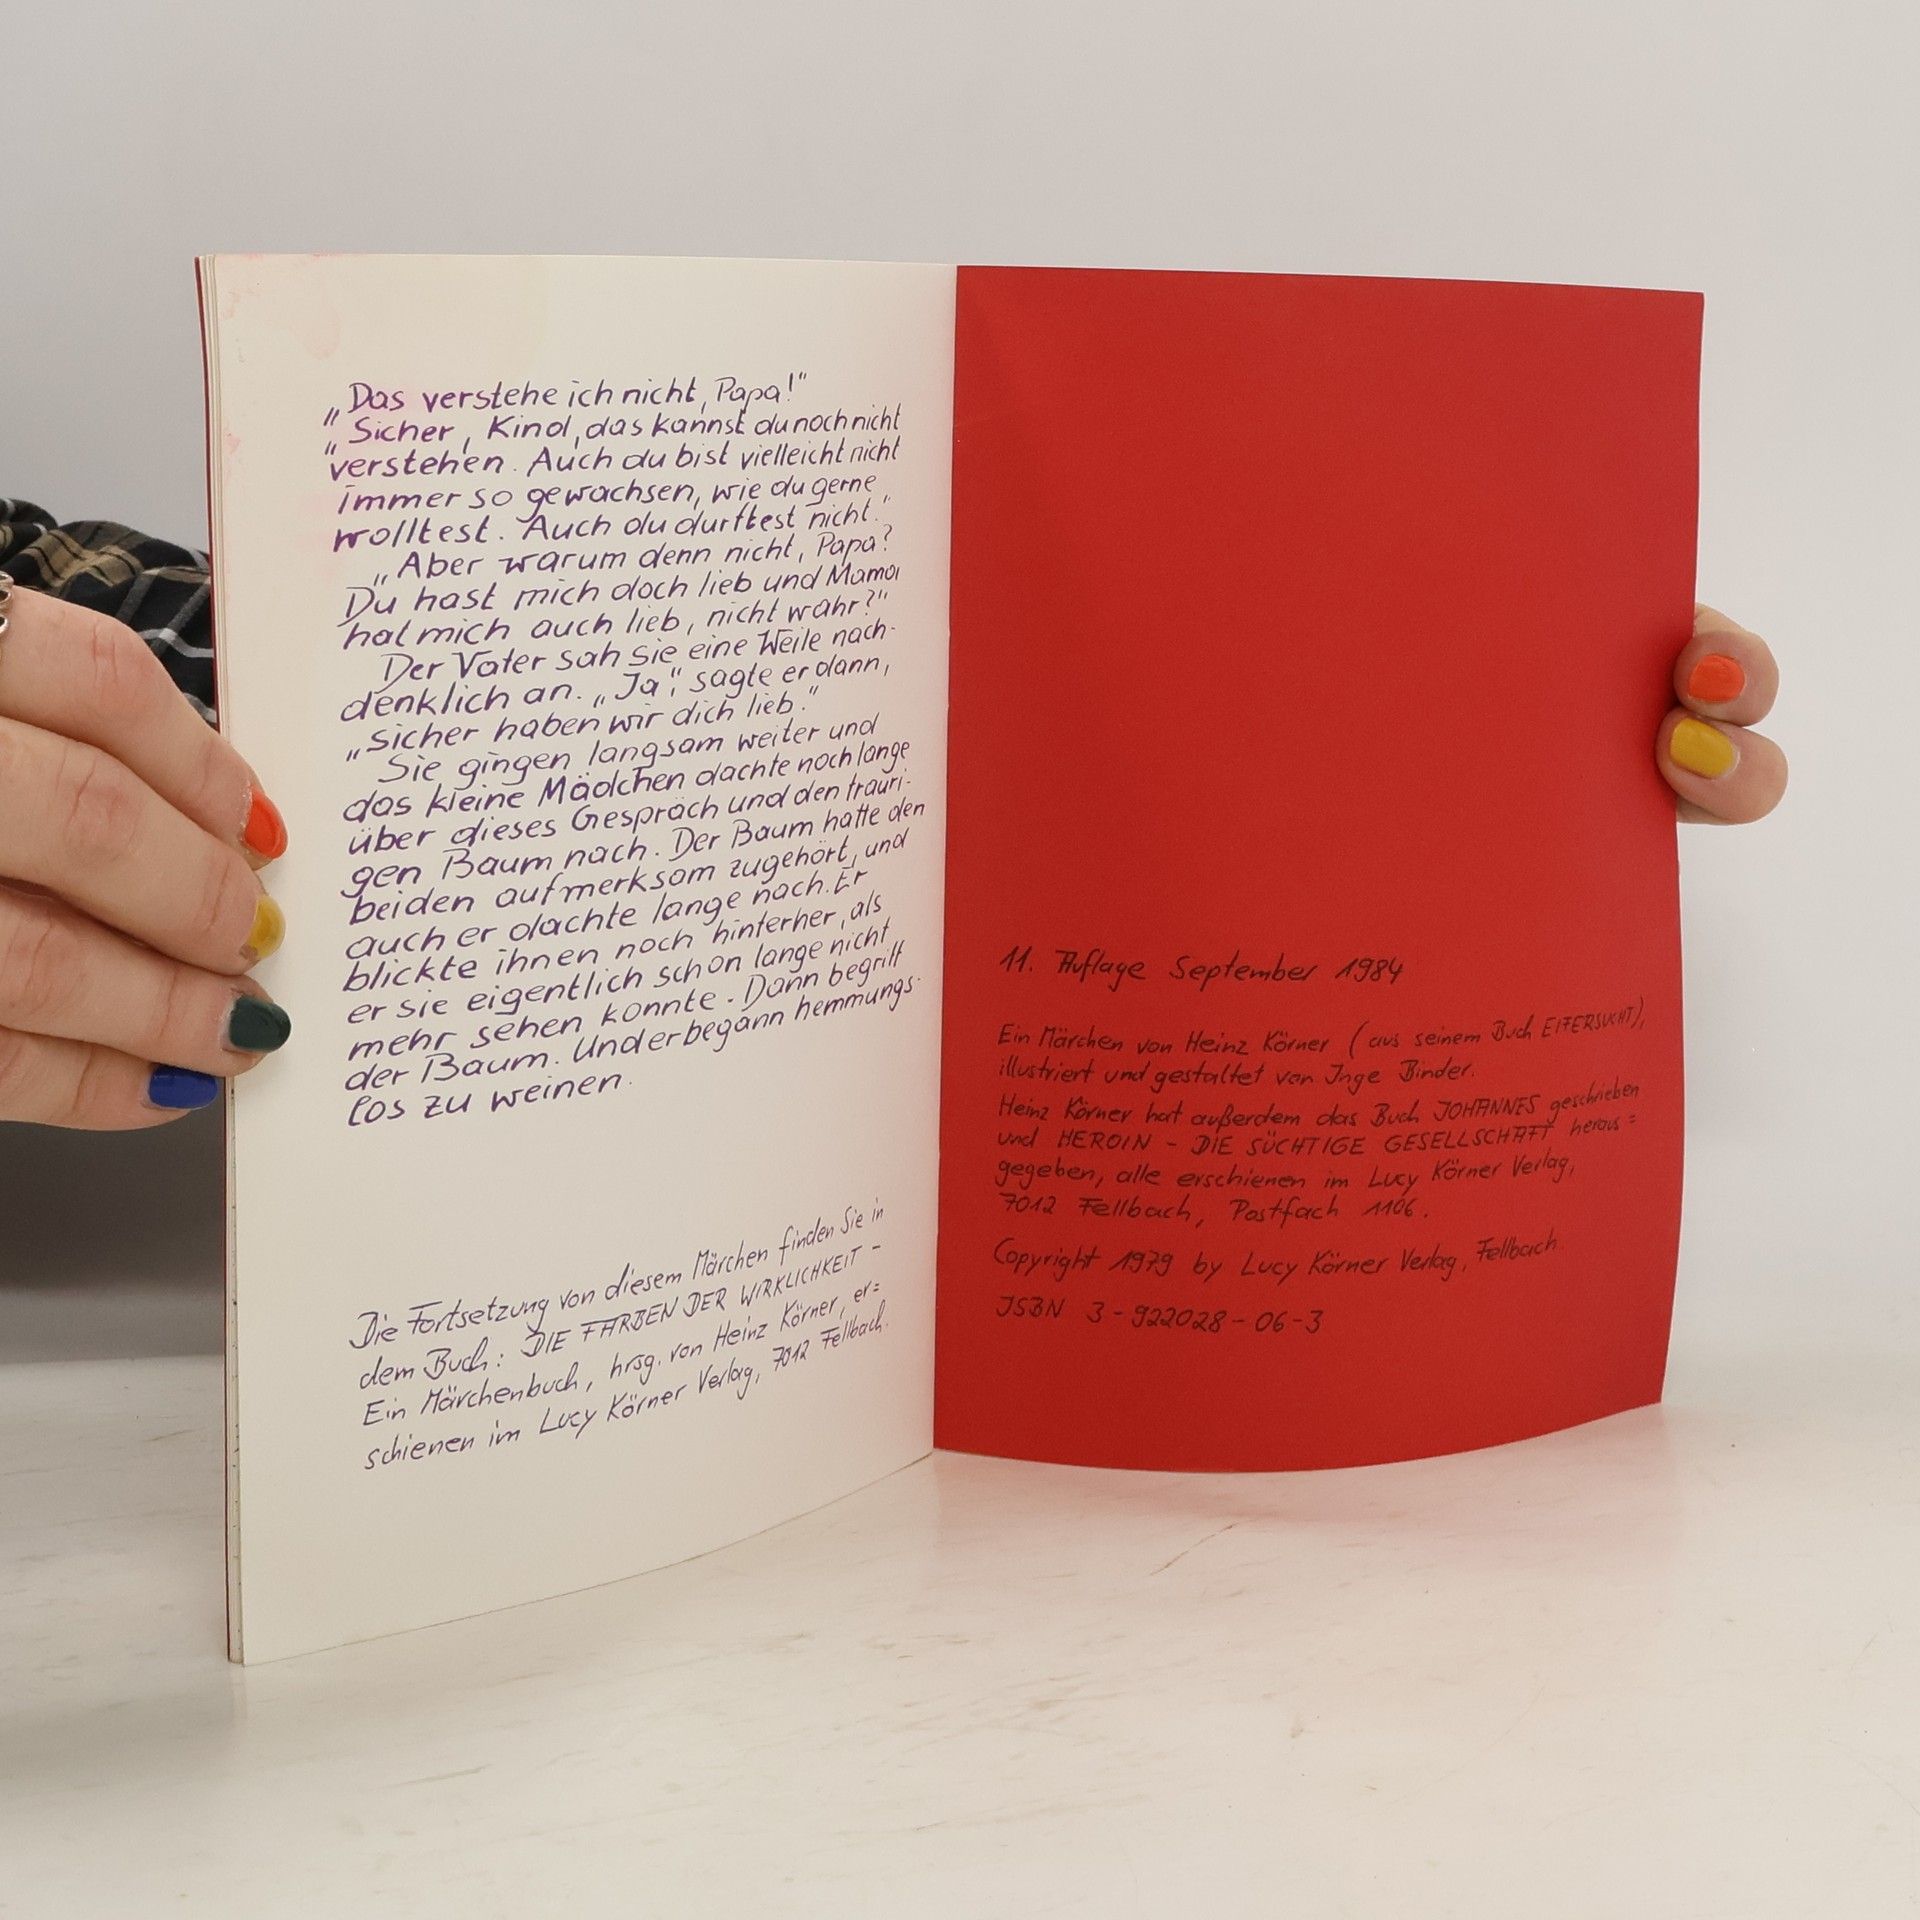 „Das verstehe ich nicht, Papa!“
„Sicher, Kind, das kannst du noch nicht
verstehen. Auch du bist vielleicht nicht
immer so gewachsen, wie du gerne
wolltest. Auch du durftest nicht.“
„Aber warum denn nicht, Papa?
Du hast mich doch lieb und Mama
hat mich auch lieb, nicht wahr?“
Der Vater sah sie eine Weile nach-
denklich an. „Ja“, sagte er dann,
„sicher haben wir dich lieb.“
Sie gingen langsam weiter und
das kleine Mädchen dachte noch lange
über dieses Gespräch und den trauri-
gen Baum nach. Der Baum hatte den
beiden aufmerksam zugehört, und
auch er dachte lange nach. Er
blickte ihnen noch hinterher, als
er sie eigentlich schon lange nicht
mehr sehen konnte. Dann begriff
der Baum. Und er begann hemmungs-
los zu weinen.
Die Fortsetzung von diesem Märchen finden Sie in
dem Buch: DIE FARBEN DER WIRKLICHKEIT -
Ein Märchenbuch, hrsg. von Heinz Körner, er=
schienen im Lucy Körner Verlag, 7012 Fellbach.
11. Auflage September 1984
Ein Märchen von Heinz Körner (aus seinem Buch EIFERSUCHT),
illustriert und gestaltet von Inge Binder.
Heinz Körner hat außerdem das Buch JOHANNES geschrieben
und HEROIN - DIE SÜCHTIGE GESELLSCHAFT heraus=
gegeben, alle erschienen im Lucy Körner Verlag,
7012 Fellbach, Postfach 1106.
Copyright 1979 by Lucy Körner Verlag, Fellbach.
ISBN 3-922028-06-3